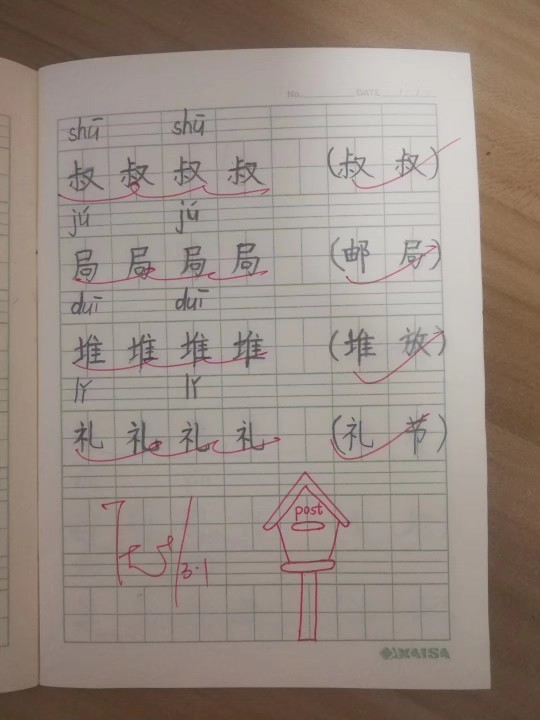 No. DATE / /
shū shū
叔 叔 叔 叔 (叔 叔)
jú jú
局 局 局 局 (邮 局)
duī duī
堆 堆 堆 堆 (堆 放)
lǐ lǐ
礼 礼 礼 礼 (礼 节)
post
3.1
KAISA